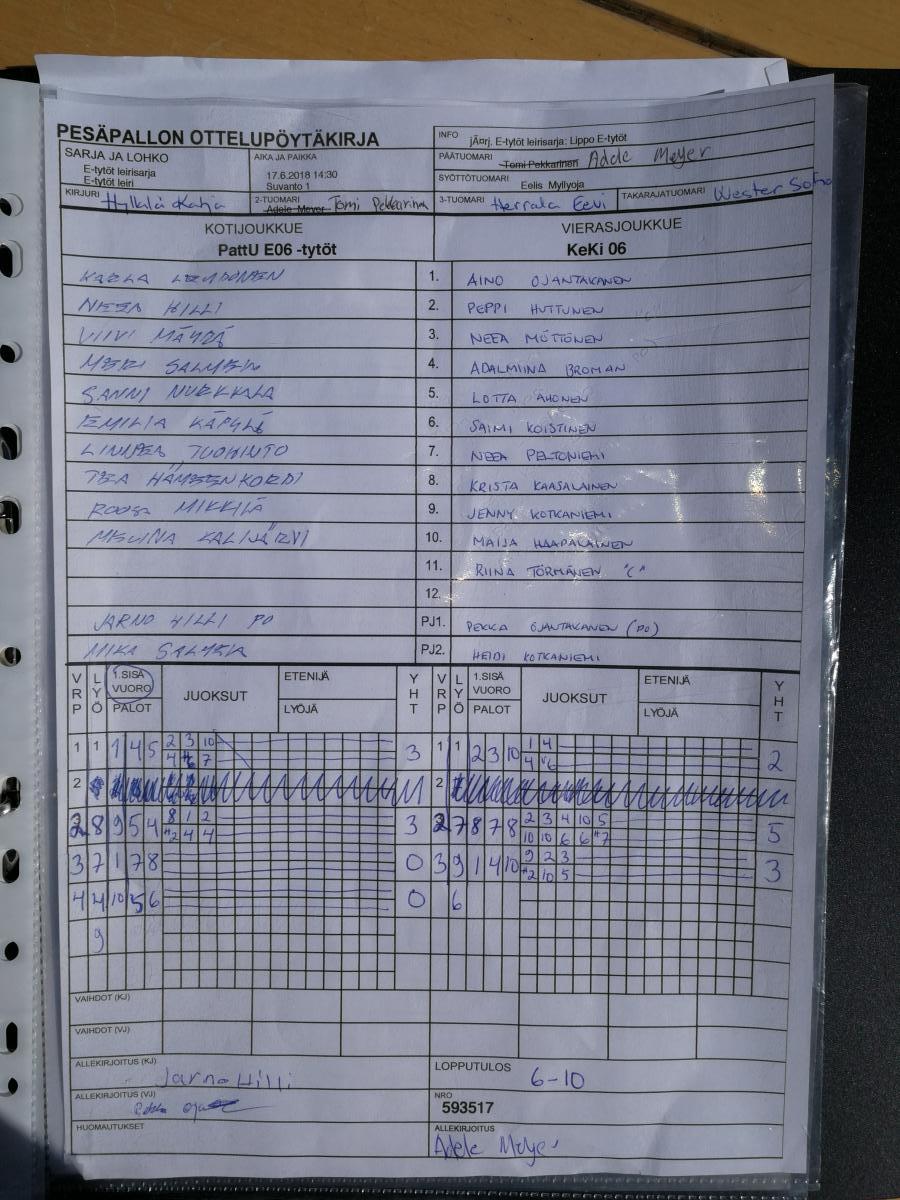 PESÄPALLON OTTELUPÖYTÄKIRJA
SARJA JA LOHKO
E-tytöt leirisarja
E-tytöt leiri
AIKA JA PAIKKA
17.6.2018 14:30
Suvanto 1
INFO jÃ¤rj. E-tytöt leirisarja: Lippo E-tytöt
PÄÄTUOMARI Tomi Pekkarinen Adele Meyer
SYÖTTÖTUOMARI Eelis Myllyoja
KIRJURI Hylkälä Katja
2-TUOMARI Adele Meyer Tomi Pekkarinen
3-TUOMARI Herrala Eevi
TAKARAJATUOMARI Wester
KOTIJOUKKUE VIERASJOUKKUE
PattU E06 -tytöt KeKi 06
KARLA 1. AINO OJANTAKANEN
NEEA HILLI 2. PEPPI HUTTUNEN
VIIVI MÄYRÄ 3. NEEA MÖTTÖNEN
MERI SALMELA 4. ADALMIINA BROMAN
SANNI NURKKALA 5. LOTTA AHONEN
EMILIA KÄPYLÄ 6. SAIMI KOISTINEN
LINNEA TUOHINTO 7. NEEA PELTONIEMI
TEA HÄMEENKORPI 8. KRISTA KAASALAINEN
ROOSA MIKKILÄ 9. JENNY KOTKANIEMI
KALIJÄRVI 10. MAIJA HAAPALAINEN
11. RIINA TÖRMÄNEN "C"
12.
JARNO HILLI PO PJ1. PEKKA OJANTAKANEN (PO)
MIKA SALMELA PJ2. HEIDI KOTKANIEMI
VRP LYÖ 1.SISÄ VUORO PALOT JUOKSUT ETENIJÄ LYÖJÄ YHT VRP LYÖ 1.SISÄ VUORO PALOT JUOKSUT ETENIJÄ LYÖJÄ YHT
1 1 1 4 5 2 3 10 3 1 1 2 3 10 1 4 2
4 *6 7 4 *6
2 2
2 8 9 5 4 8 1 2 3 2 7 8 7 8 2 3 4 10 5 5
*2 4 4 10 10 6 6 *7
3 7 1 7 8 0 3 9 1 4 10 9 2 3 3
*2 10 5
4 4 10 5 6 0 6
9
VAIHDOT (KJ)
VAIHDOT (VJ)
ALLEKIRJOITUS (KJ) Jarno Hilli
LOPPUTULOS 6-10
ALLEKIRJOITUS (VJ)
NRO
593517
HUOMAUTUKSET
ALLEKIRJOITUS
Adele Meyer